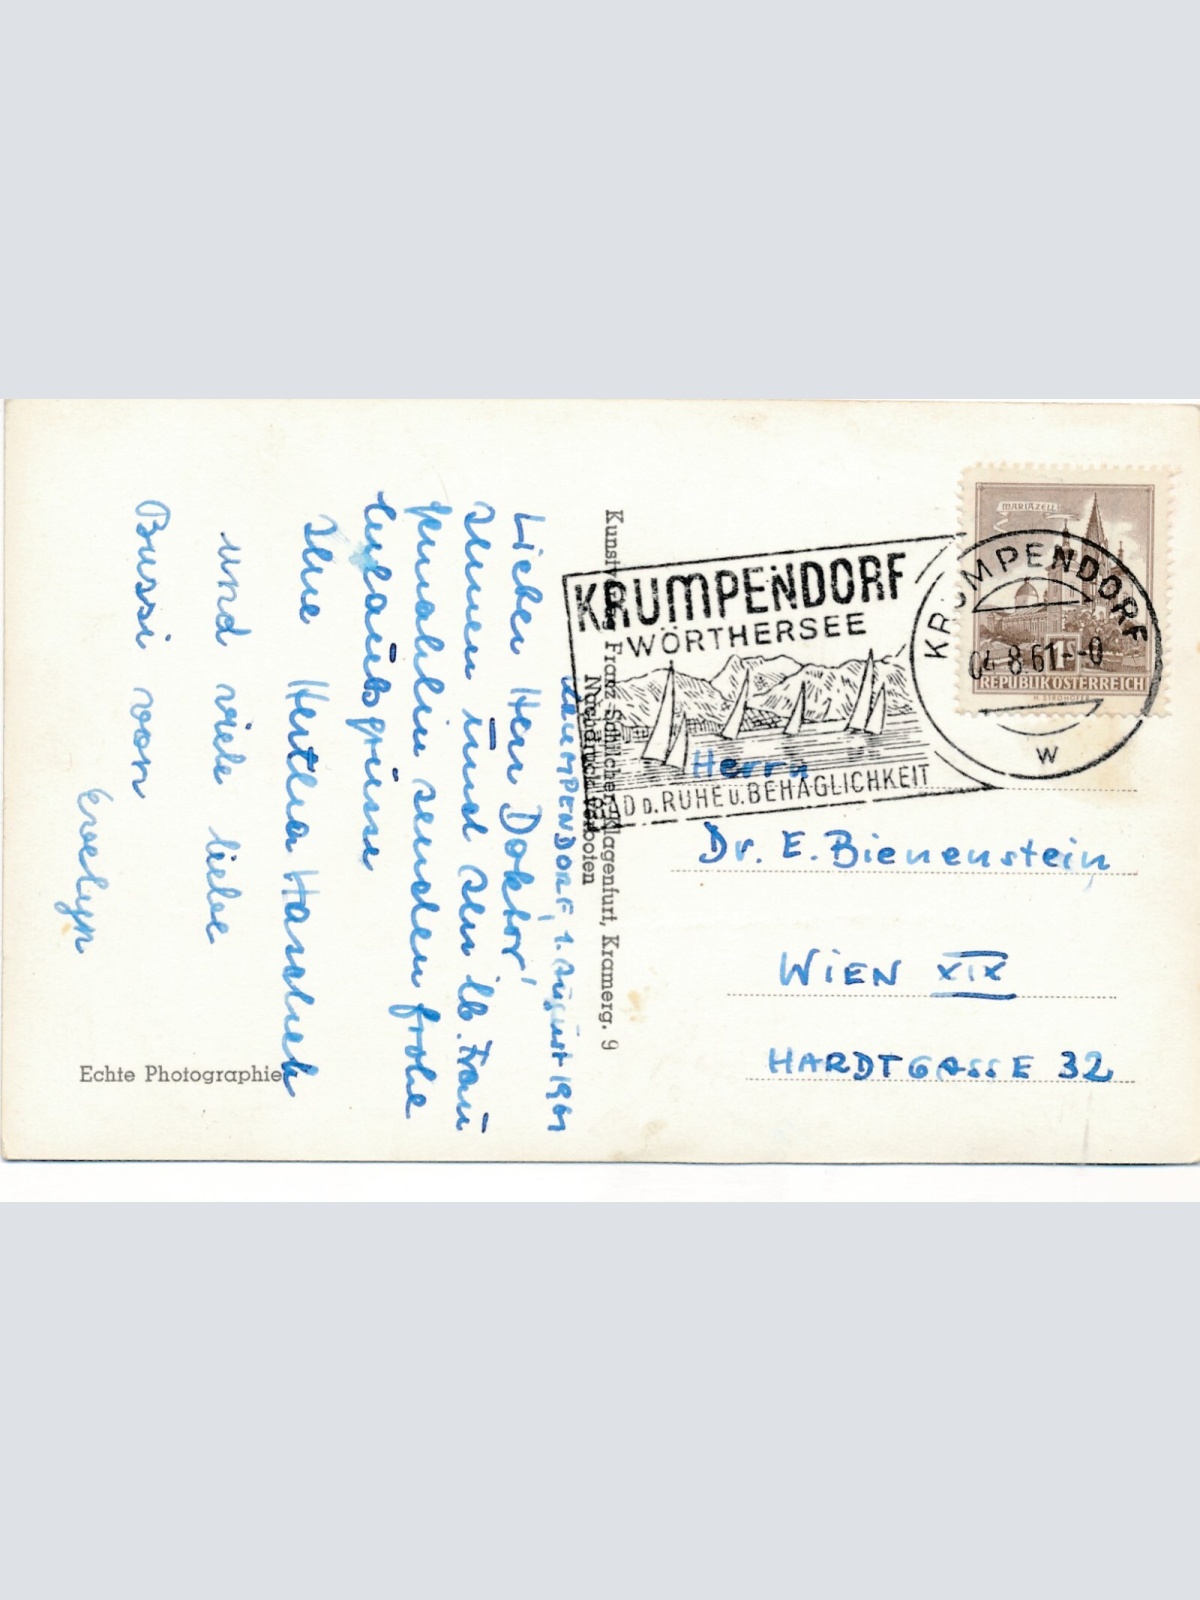 Krumpendorf, 1. August 1961
Lieber Herr Doktor!
Ihnen und Ihrer lb. Frau
Gemahlin senden frohe
Urlaubsgrüsse
Ihre Hertha
und viele liebe
Bussi von
Evelyn
Echte Photographie
Franz Schilcher, Klagenfurt, Kramerg. 9
Nachdruck verboten
KRUMPENDORF
WÖRTHERSEE
BAD D. RUHE U. BEHAGLICHKEIT
KRUMPENDORF
04.8.61
W
MARIAZELL
REPUBLIK ÖSTERREICH
Herrn
Dr. E. Bienenstein
WIEN XIX
HARDTGASSE 32